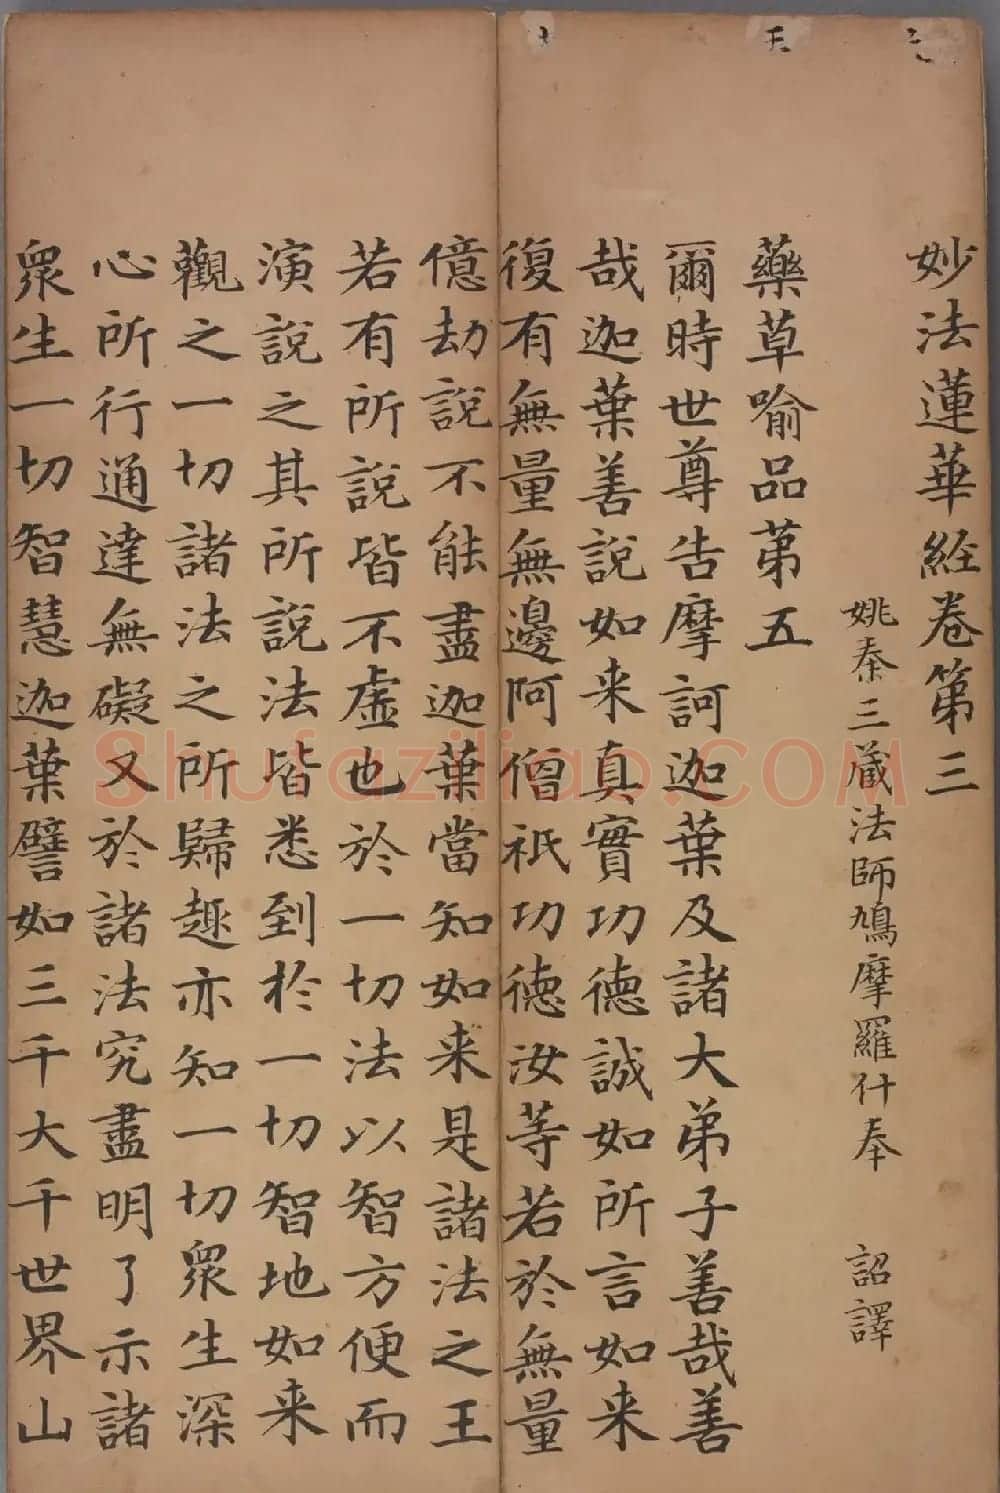 妙法蓮華經卷第三
姚秦三蔵法師鳩摩羅什奉　詔譯
藥草喻品第五
爾時世尊告摩訶迦葉及諸大弟子善哉善
哉迦葉善說如来真實功德誠如所言如来
復有無量無邊阿僧祇功德汝等若於無量
億劫說不能盡迦葉當知如来是諸法之王
若有所說皆不虛也於一切法以智方便而
演說之其所說法皆悉到於一切智地如来
觀之一切諸法之所歸趣亦知一切眾生深
心所行通達無礙又於諸法究盡明了示諸
眾生一切智慧迦葉譬如三千大千世界山
Shufaziliao.COM